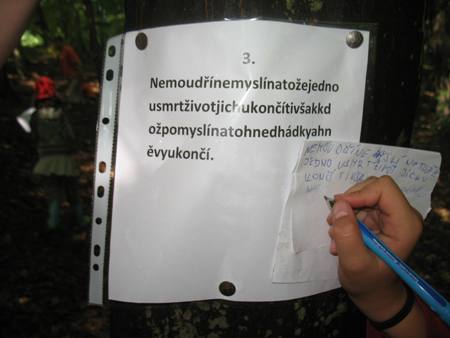 3.
Nemoudřínemyslínatožejedno
usmrtživotjichukončítivšakkd
ožpomyslínatohnedhádkyahn
ěvyukončí.
NEMOU DŘÍNE
JEDNO USMRT ŽIVOT JICHU
KONČÍ